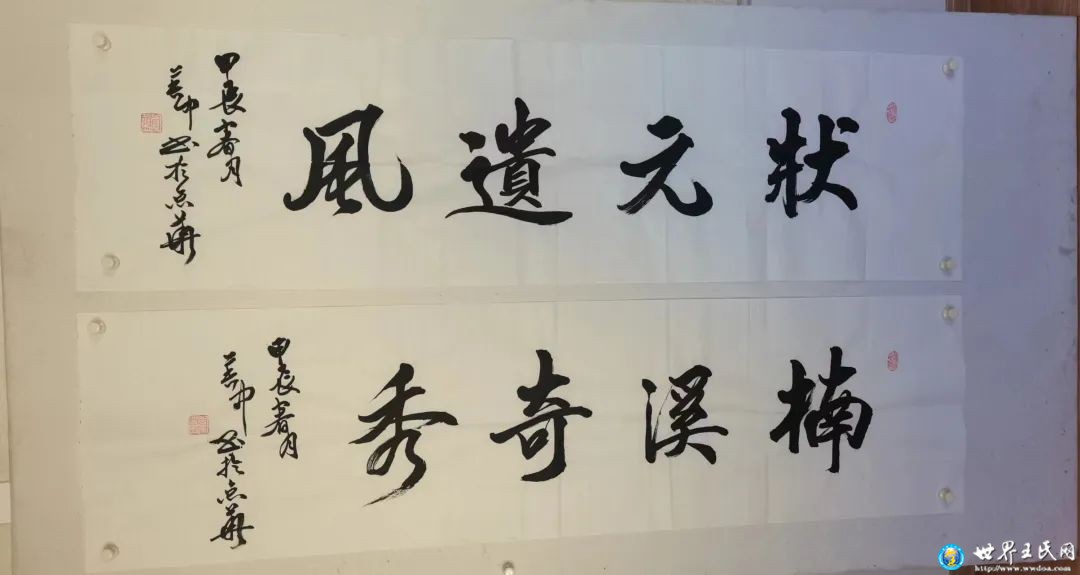 狀元遺風
甲辰春月
善中書於京華
楠溪奇秀
甲辰春月
善中書於京華
世界王氏网
http://www.wwdoa.com